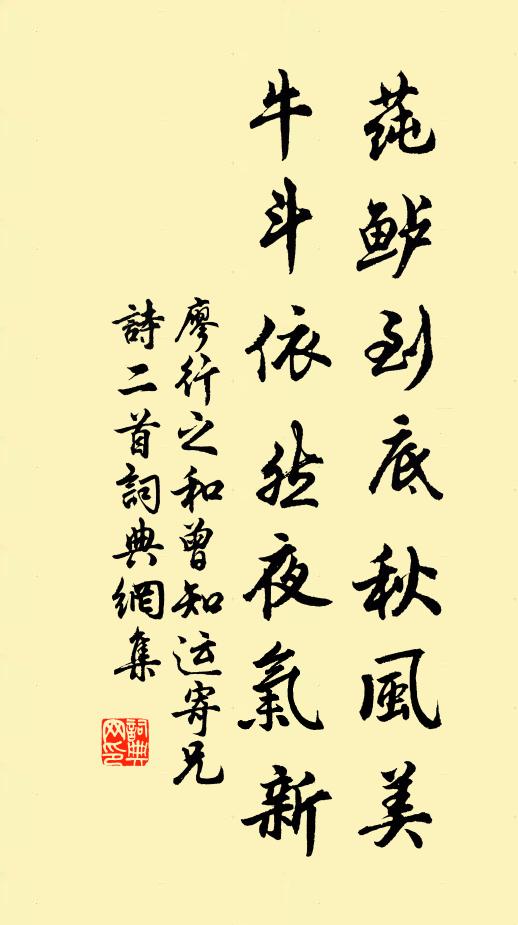 莼鲈到底秋風美
牛斗依然夜氣新
廖行之和曾知运寄兄
詩二首詞典網集
詞典網印